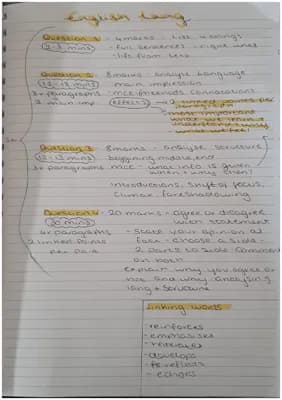 English Lang
Question 1 - 4 marks - list 4 things
- full sentences - right lines
- lift from text
Question 2 - 8 marks - analyse language
12-13 mins main impression
3+ paragraphs methods connotations
2 main imp. effects → 2 linked points per paragraph
most important
Question 3 - 8 marks - analyse structure
12-13 mins beginning middle end
3+ paragraphs what info is given
when + why then?
introductions, shift of focus,
climax, foreshadowing
Question 4 - 20 marks - agree or disagree
with statement
4+ paragraphs - state your opinion
2 linked points - choose a side -
per para
on both
explain why you agree or
not and why - analysing
lang + structure
Linking words
- reinforces
- emphasises
- reiterates
- develops
- reflects
- echoes